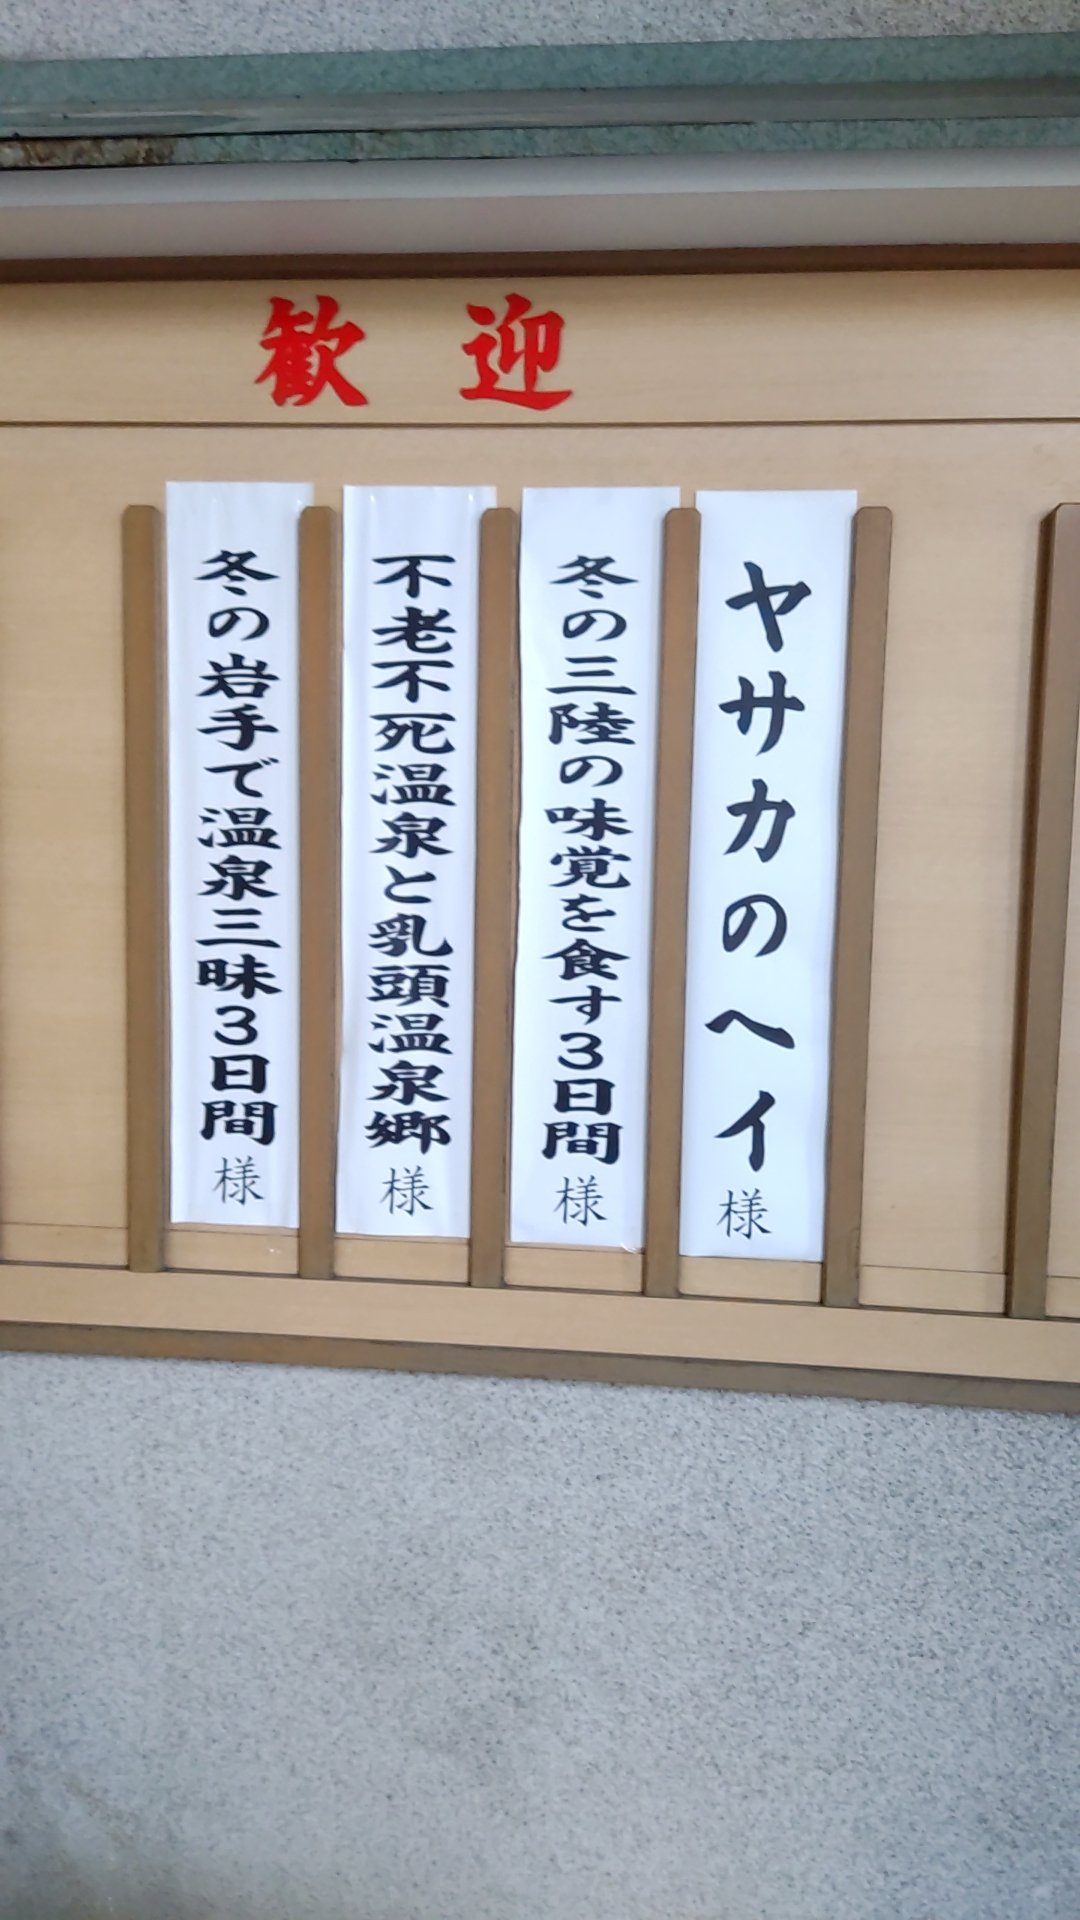 歓迎
ヤサカのヘイ様
冬の三陸の味覚を食す3日間様
不老不死温泉と乳頭温泉郷様
冬の岩手で温泉三昧3日間様